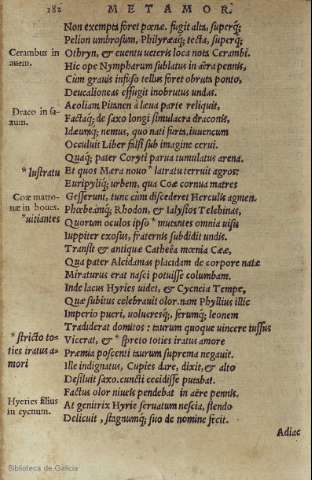 282 METAMOR.
Non exempta foret pœnæ. fugit alta, superq́;
Pelion umbrosum, Philyræaq́; tecta, superq́;
Cerambus in auem.
Othryn, & euentu ueteris loca nota Cerambi.
Hic ope Nympharum sublatus in aëra pennis,
Cum grauis infuso tellus foret obruta ponto,
Deucalioneas effugit inobrutus undas.
Aeoliam Pitanen à læua parte reliquit,
Draco in saxum.
Factaq́; de saxo longi simulacra draconis,
Idæumq́; nemus, quo nati furta, iuuencum
Occuluit Liber falsi sub imagine cerui.
Quaq́; pater Coryti parua tumulatus arena.
"lustratu
Et quos Mæra nouo "latratu terruit agros:
Euripyliq́; urbem, qua Coæ cornua matres
Coæ matronæ in boues.
Gesserunt, tunc cùm discederet Herculis agmen.
Phœbeamq́; Rhodon, & Ialysios Telchinas,
"uitiantes
Quorum oculos ipso "mutantes omnia uisu
Iuppiter exosus, fraternis subdidit undis.
Transit & antiquæ Cartheïa mœnia Cææ,
Qua pater Alcidamas placidam de corpore natæ
Miraturus erat nasci potuisse columbam.
Inde lacus Hyries uidet, & Cycneia Tempe,
Quæ subitus celebrauit olor. nam Phyllius illic
Imperio pueri, uolucresq́;, ferumq́; leonem
Tradiderat domitos: taurum quoque uincere iussus
"stricto toties iratus amori
Vicerat, & "spreto toties iratus amore
Præmia poscenti taurum suprema negauit.
Ille indignatus, Cupies dare, dixit, & alto
Desiluit saxo. cuncti cecidisse putabat.
Hyries filius in cycnum.
Factus olor niueis pendebat in aëre pennis.
At genitrix Hyrie seruatum nescia, flendo
Delicuit, stagnumq́; suo de nomine fecit.
Adiac
Biblioteca de Galicia